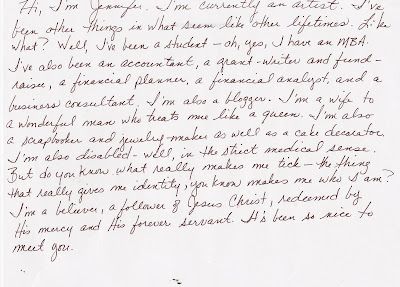 Hi, I'm Jennifer. I'm currently an artist. I've
been other things in what seem like other lifetimes. Like
what? Well, I've been a student - oh, yes, I have an MBA.
I've also been an accountant, a grant-writer and fund-
raiser, a financial planner, a financial analyst, and a
business consultant. I'm also a blogger. I'm a wife to
a wonderful man who treats me like a queen. I'm also
a scrapbooker and jewelry-maker as well as a cake decorator.
I'm also disabled - well, in the strict medical sense.
But do you know what really makes me tick - the thing
that really gives me identity, you know makes me who I am?
I'm a believer, a follower of Jesus Christ, redeemed by
His mercy and His forever servant. It's been so nice to
meet you.